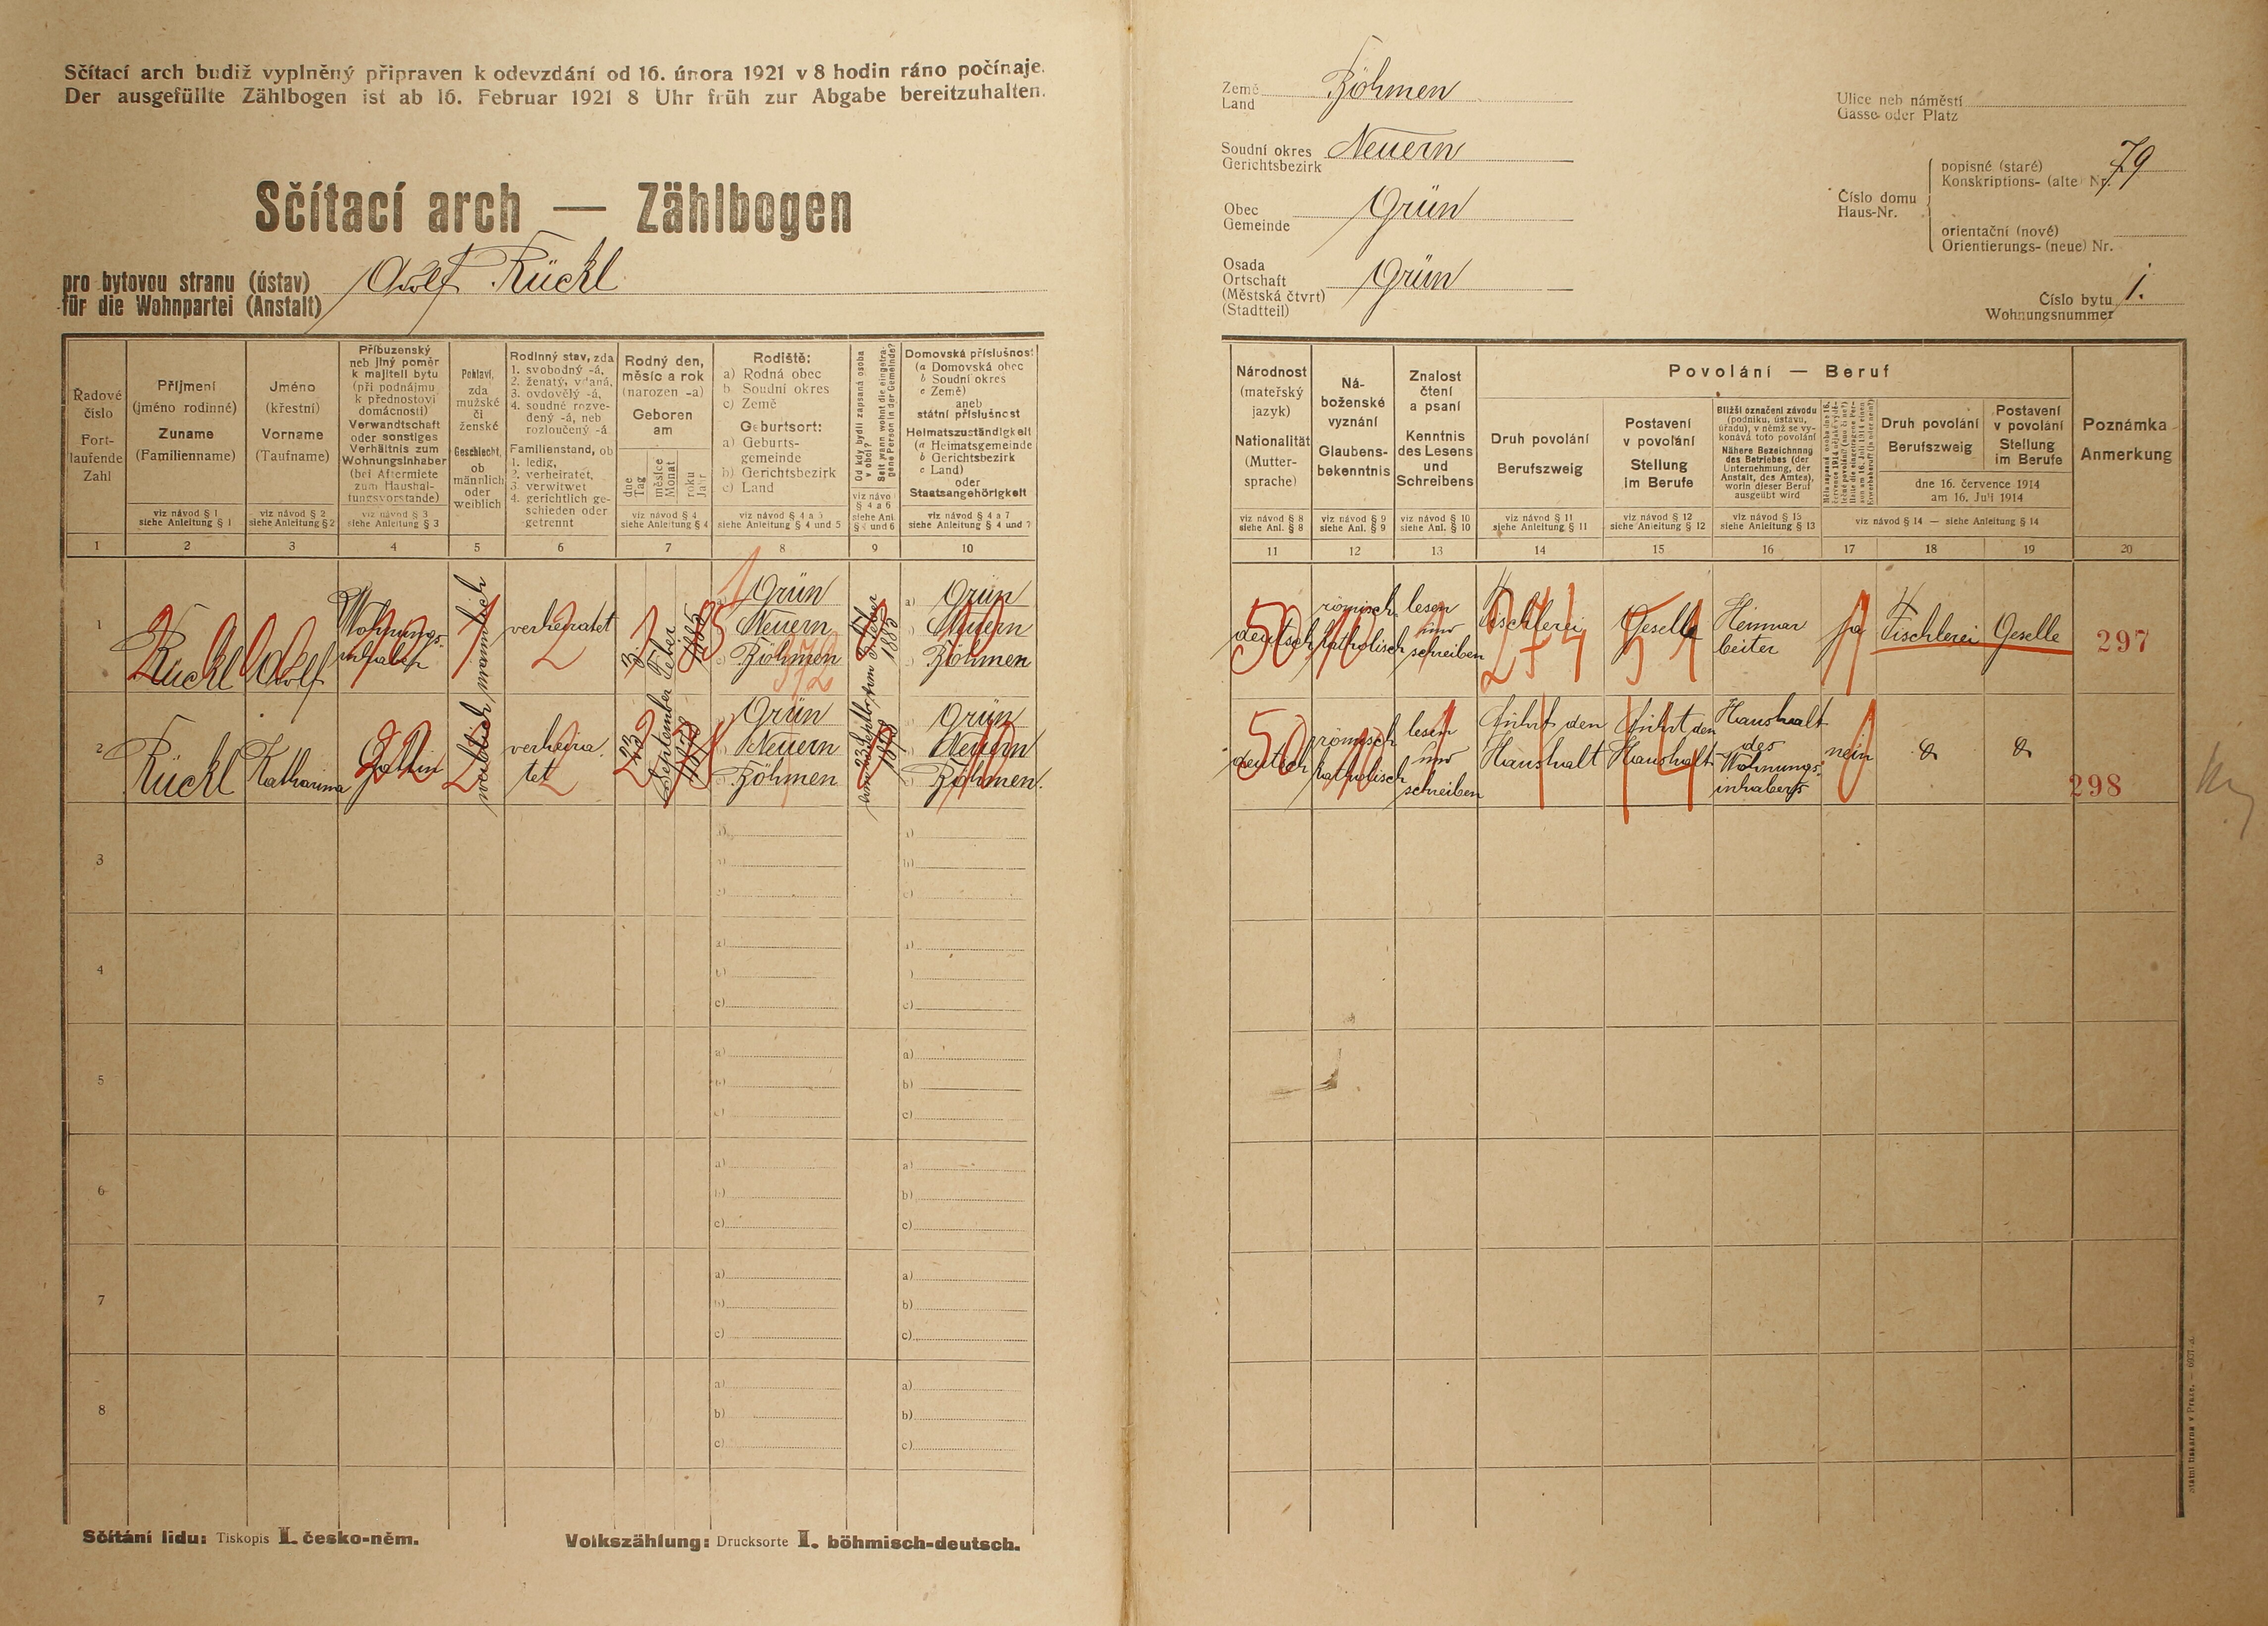 Sčítací arch budiž vyplněný připraven k odevzdání od 16. února 1921 v 8 hodin ráno počínaje.
Der ausgefüllte Zählbogen ist ab 16. Februar 1921 8 Uhr früh zur Abgabe bereitzuhalten.
Sčítací arch — Zählbogen
pro bytovou stranu (ústav)
für die Wohnpartei (Anstalt)
Adolf Rückl
Země
Land
Böhmen
Soudní okres
Gerichtsbezirk
Neuern
Obec
Gemeinde
Grün
Osada
Ortschaft
(Městská čtvrt)
(Stadtteil)
Grün
Ulice neb náměstí
Gasse oder Platz
Číslo domu
Haus-Nr.
popisné (staré)
Konskriptions- (alte) Nr.
79
orientační (nové)
Orientierungs- (neue) Nr.
Číslo bytu
Wohnungsnummer
1.
Řadové
číslo
Fort-
laufende
Zahl
Příjmení
(jméno rodinné)
Zuname
(Familienname)
viz návod § 1
siehe Anleitung § 1
Jméno
(křestní)
Vorname
(Taufname)
viz návod § 2
siehe Anleitung § 2
Příbuzenský
neb jiný poměr
k majiteli bytu
(při podnájmu
k přednostovi
domácnosti)
Verwandtschaft
oder sonstiges
Verhältnis zum
Wohnungsinhaber
(bei Aftermiete
zum Haushal-
tungsvorstande)
viz návod § 3
siehe Anleitung § 3
Pohlaví,
zda
mužské
či
ženské
Geschlecht,
ob
männlich
oder
weiblich
Rodinný stav, zda
1. svobodný -á,
2. ženatý, vdaná,
3. ovdovělý -á,
4. soudně rozve-
dený -á, neb
rozloučený -á
Familienstand, ob
1. ledig,
2. verheiratet,
3. verwitwet
4. gerichtlich ge-
schieden oder
getrennt
Rodný den,
měsíc a rok
(narozen -a)
Geboren
am
dne
Tag
měsíce
Monat
roku
Jahr
viz návod § 4
siehe Anleitung § 4
Rodiště:
a) Rodná obec
b) Soudní okres
c) Země
Geburtsort:
a) Geburts-
gemeinde
b) Gerichtsbezirk
c) Land
viz návod § 4 a 5
siehe Anleitung § 4 und 5
Od kdy bydlí zapsaná osoba
v obci?
Seit wann wohnt die eingetra-
gene Person in der Gemeinde?
viz návod
§ 4 a 6
siehe Anl.
§ 4 und 6
Domovská příslušnost
(a Domovská obec
b Soudní okres
c Země)
aneb
státní příslušnost
Heimatszuständigkeit
(a Heimatsgemeinde
b Gerichtsbezirk
c Land)
oder
Staatsangehörigkeit
viz návod § 4 a 7
siehe Anleitung § 4 und 7
Národnost
(mateřský
jazyk)
Nationalität
(Mutter-
sprache)
viz návod § 8
siehe Anl. § 8
Ná-
boženské
vyznání
Glaubens-
bekenntnis
viz návod § 9
siehe Anl. § 9
Znalost
čtení
a psaní
Kenntnis
des Lesens
und
Schreibens
viz návod § 10
siehe Anl. § 10
Povolání — Beruf
Druh povolání
Berufszweig
viz návod § 11
siehe Anleitung § 11
Postavení
v povolání
Stellung
im Berufe
viz návod § 12
siehe Anleitung § 12
Bližší označení závodu
(podniku, ústavu,
úřadu), v němž se vy-
konává toto povolání
Nähere Bezeichnung
des Betriebes (der
Unternehmung, der
Anstalt, des Amtes),
worin dieser Beruf
ausgeübt wird
viz návod § 13
siehe Anleitung § 13
Druh povolání
Berufszweig
Postavení
v povolání
Stellung
im Berufe
dne 16. července 1914
am 16. Juli 1914
viz návod § 14 — siehe Anleitung § 14
Poznámka
Anmerkung
1 2 3 4 5 6 7 8 9 10 11 12 13 14 15 16 17 18 19 20
1
Rückl
Adolf
Wohnungs-
inhaber
männlich
verheiratet
2
3.
Feber
1885
a) Grün
Neuern
Böhmen
372
vom 3. Feber
1885
a) Grün
Neuern
Böhmen
deutsch
50
römisch
katholisch
10
lesen
und
schreiben
Tischlerei
274
Geselle
Heimar
beiter
ja
Tischlerei
Geselle
297
2
Rückl
Katharina
Gattin
weiblich
verheira-
tet
2
23
September
1878
Grün
Neuern
Böhmen
1878
Grün
Neuern
Böhmen.
deutsch
50
römisch
katholisch
10
lesen
und
schreiben
führt den
Haushalt
führt den
Haushalt
Haushalt
des
Wohnungs-
inhabers
nein
298
3
4
5
6
7
8
Sčítání lidu: Tiskopis I. česko-něm.
Volkszählung: Drucksorte I. böhmisch-deutsch.